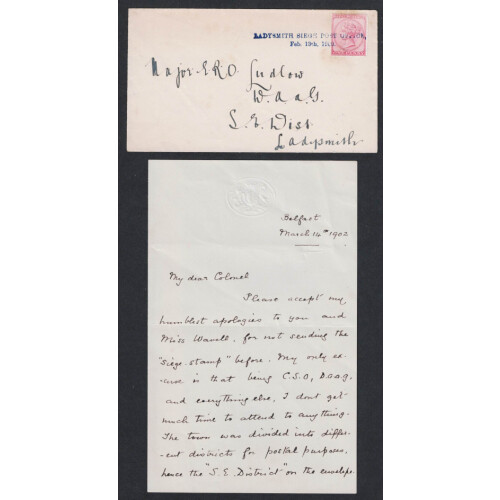 LADYSMITH SIEGE POST OFFICE,
Feb. 19th,
Major E.R.O. Ludlow
D.a.a.G.
S.E. Dist
Ladysmith
Belfast
March 14th 1902
My dear Colonel
Please accept my
humblest apologies to you and
Miss Wavell, for not sending the
"siege stamp" before. My only ex-
-cuse is that being C.S.O, D.a.a.g.
and everything else, I dont get
much time to attend to anything.
The town was divided into differ-
-ent districts for postal purposes,
hence the "S.E. District" on the envelope.